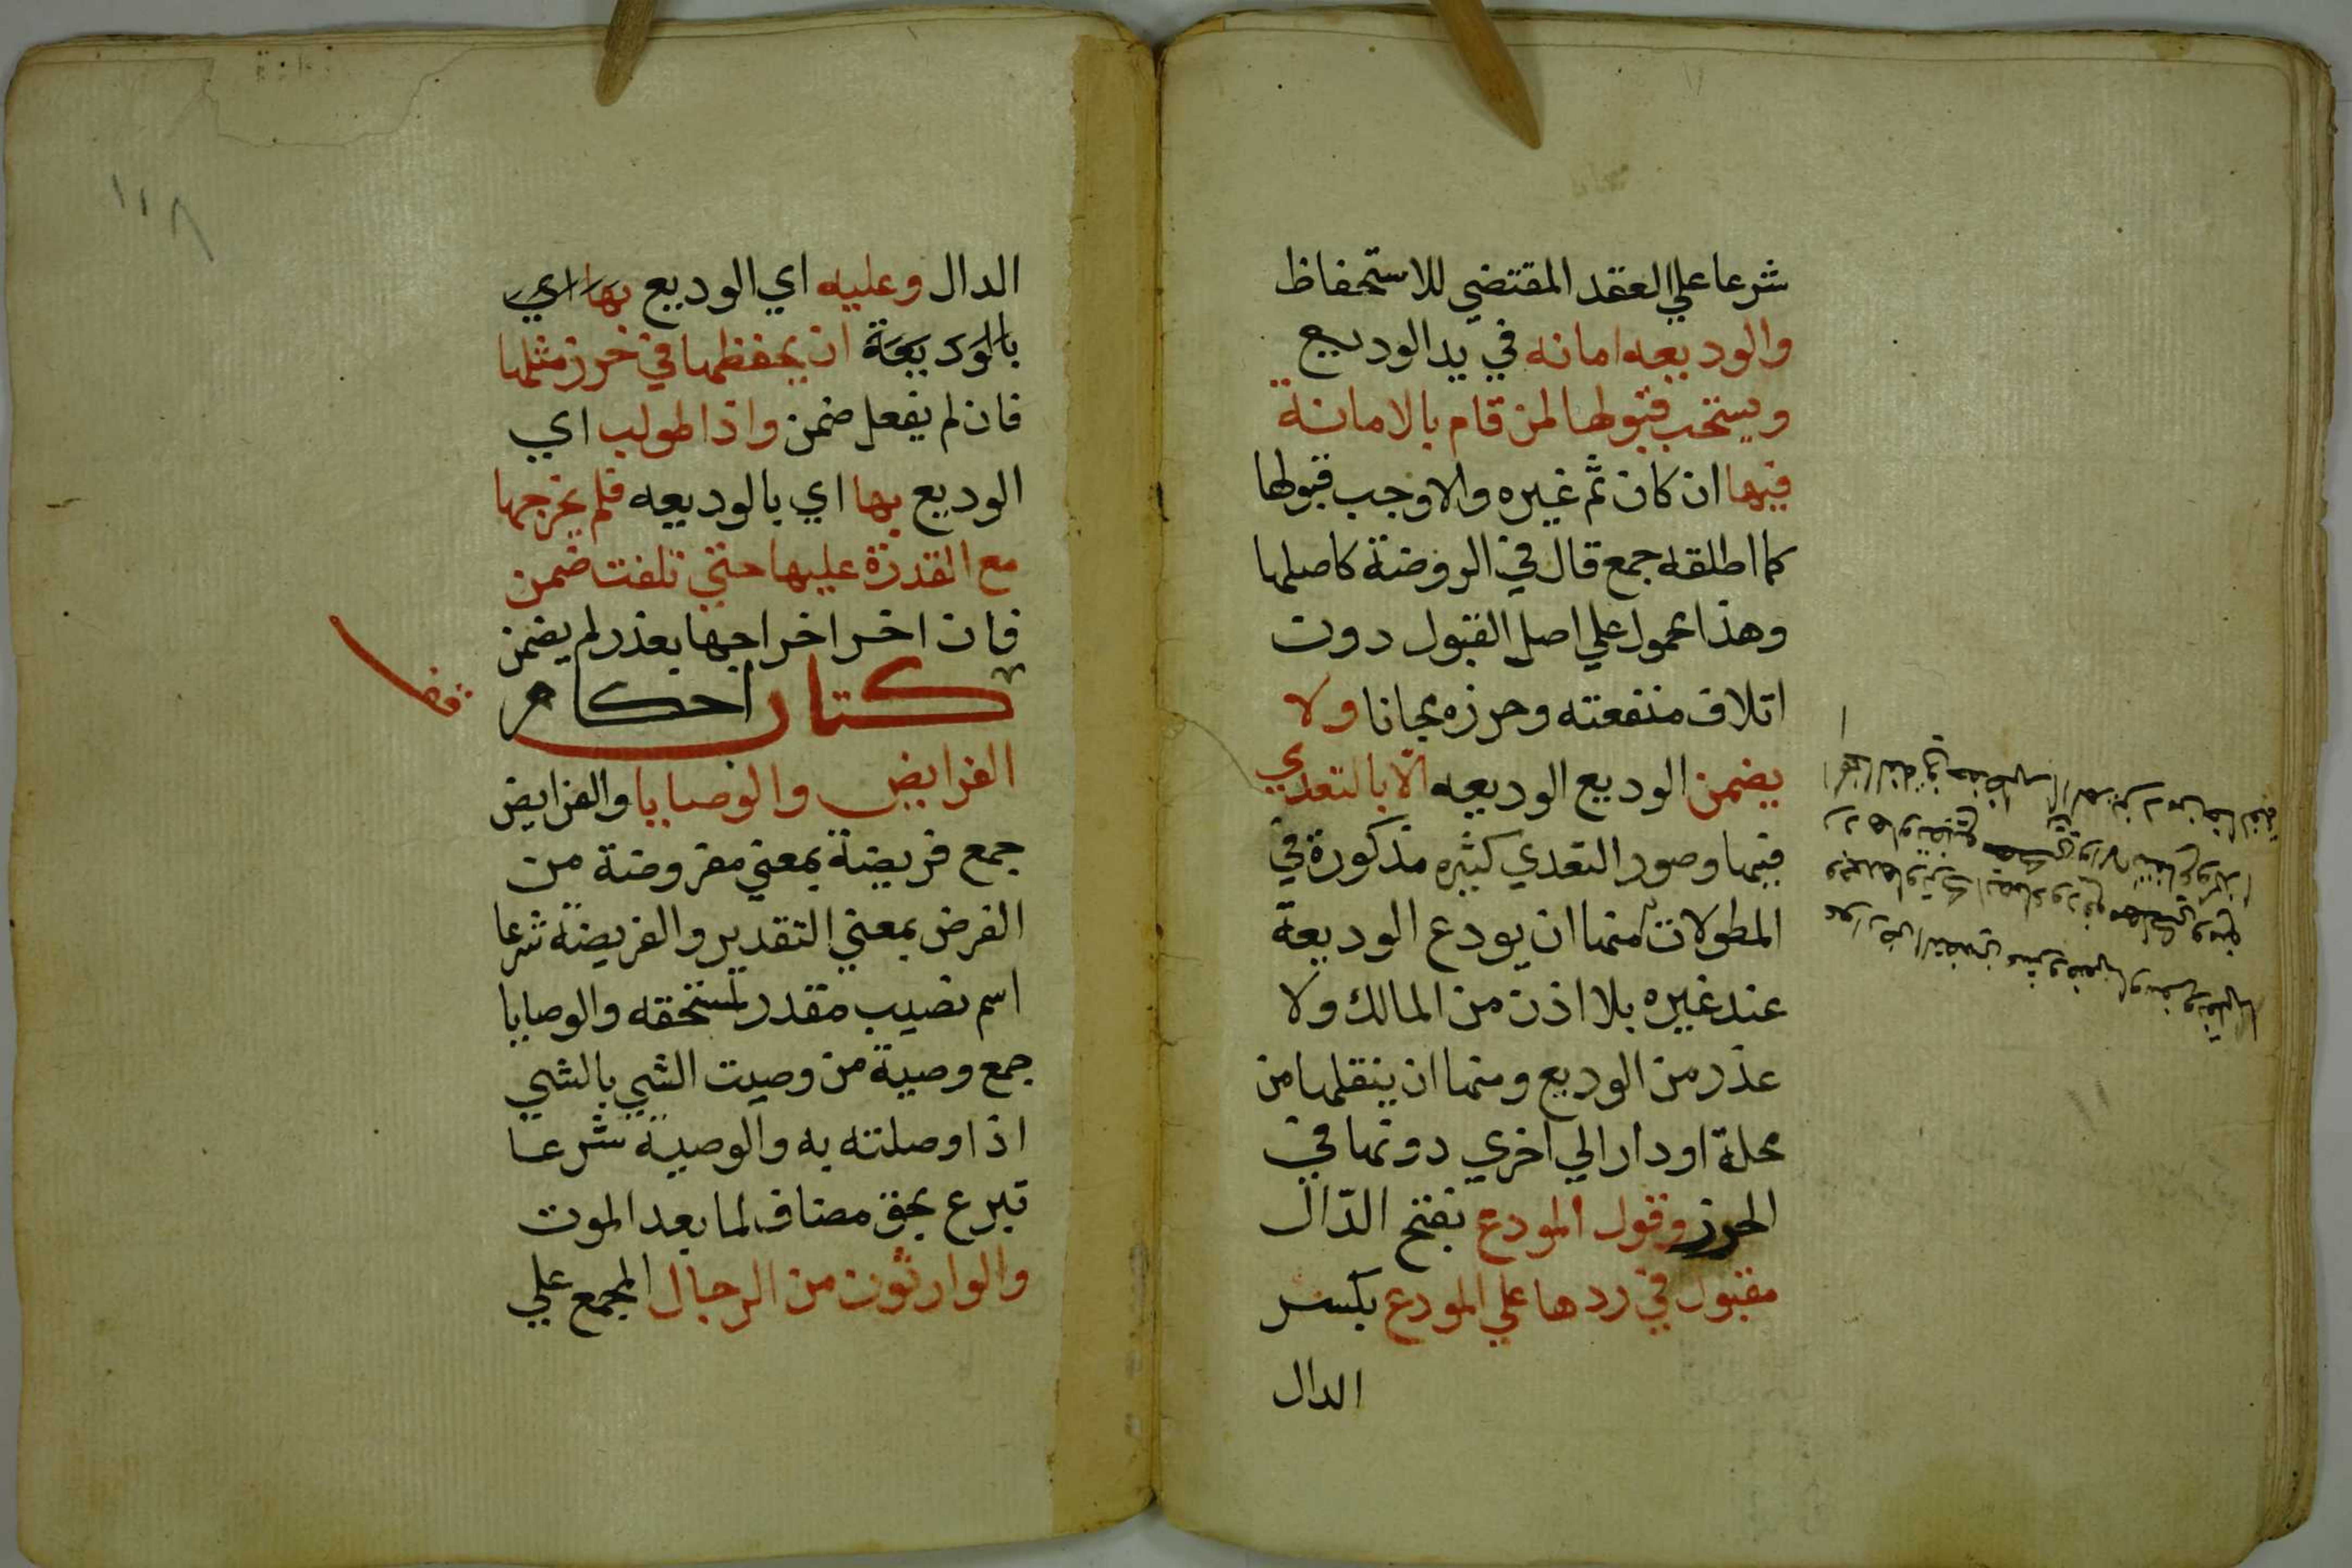 شرعا علي العقد المقتضي للاستحفاظ
والوديعه امانه في يد الوديع
ويستحب قبولها لمن قام بالامانة
فيها ان كان ثم غيره والا وجب قبولها
كما اطلقه جمع قال في الروضة كاصلها
وهذا محمول علي اصل القبول دون
اتلاف منفعته وحرزه مجانا ولا
يضمن الوديع الوديعه الا بالتعدي
فيها وصور التعدي كثيره مذكورة في
المطولات منها ان يودع الوديعة
عند غيره بلا اذن من المالك ولا
عذر من الوديع ومنها ان ينقلها من
محلة او دار الي اخري دونها في
الحرز وقول المودع بفتح الدال
مقبول في ردها علي المودع بكسر
الدال
١١٨
الدال وعليه اي الوديع بها اي
بالوديعة ان يحفظها في حرز مثلها
فان لم يفعل ضمن واذا طولب اي
الوديع بها اي بالوديعه فلم يخرجها
مع القدرة عليها حتي تلفت ضمن
فان اخر اخراجها بعذر لم يضمن
كتاب احكام
الفرايض والوصايا والفرايض
جمع فريضة بمعني مفروضة من
الفرض بمعني التقدير والفريضة شرعا
اسم نصيب مقدر لمستحقه والوصايا
جمع وصية من وصيت الشي بالشي
اذا وصلته به والوصية شرعا
تبرع بحق مضاف لما بعد الموت
والوارثون من الرجال المجمع علي